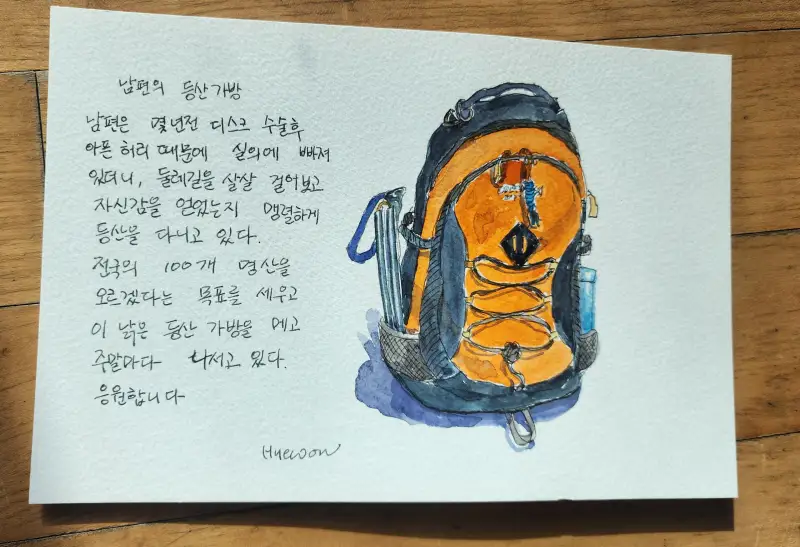 남편의 등산가방
남편은 몇년전 디스크 수술후
아픈 허리 때문에 실의에 빠져
있더니, 둘레길을 살살 걸어보고
자신감을 얻었는지 맹렬하게
등산을 다니고 있다.
전국의 100개 명산을
오르겠다는 목표를 세우고
이 낡은 등산 가방을 메고
주말마다 나서고 있다.
응원합니다
Huewon